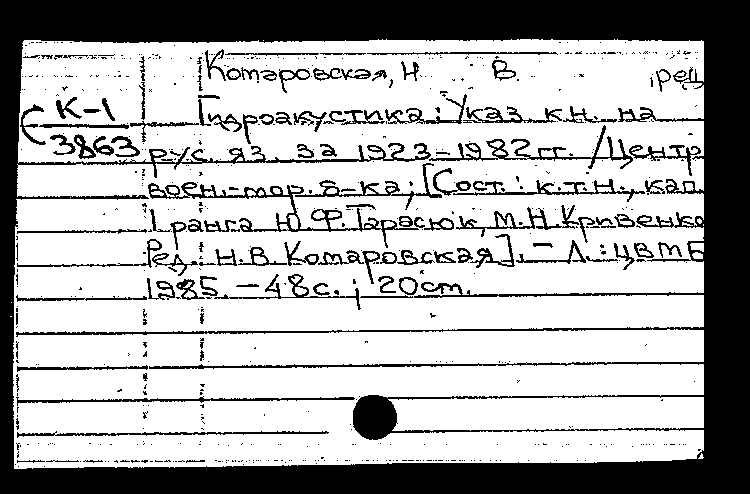 Комаровская, Н В , рец
К-1
3863
Гидроакустика : Указ. кн. на
рус. яз. за 1923-1982 гг. / Центр
воен.-мор. б-ка; [Сост.: к.т.н., кап.
1 ранга Ю.Ф. Тарасюк, М.Н. Кривенко
Ред.: Н.В. Комаровская]. - Л. : ЦВМБ
1985. - 48 с. ; 20 cm.